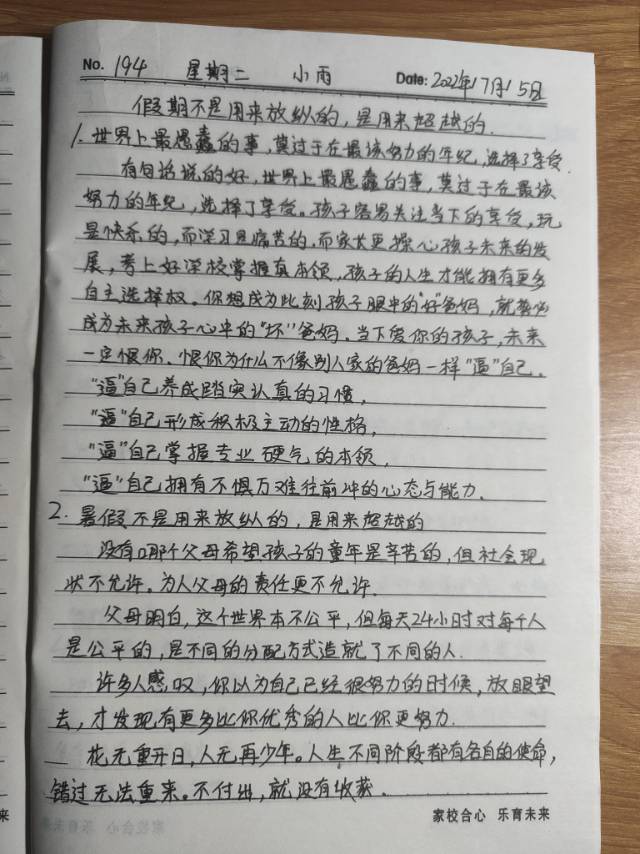 No. 194 星期二 小雨 Date: 2022年7月5日
假期不是用来放纵的，是用来超越的.
1. 世界上最愚蠢的事，莫过于在最该努力的年纪，选择了享受.
有句话说的好，世界上最愚蠢的事，莫过于在最该
努力的年纪，选择了享受。孩子容易关注当下的享受，玩
是快乐的，而学习是痛苦的，而家长更操心孩子未来的发
展，考上好学校掌握真本领，孩子的人生才能拥有更多
自主选择权。你想成为此刻孩子眼中的"好"爸妈，就势必
成为未来孩子心中的"坏"爸妈。当下爱你的孩子，未来
一定恨你。恨你为什么不像别人家的爸妈一样"逼"自己。
"逼"自己养成踏实认真的习惯，
"逼"自己形成积极主动的性格，
"逼"自己掌握专业硬气的本领，
"逼"自己拥有不惧万难往前冲的心态与能力.
2. 暑假不是用来放纵的，是用来超越的
没有哪个父母希望孩子的童年是辛苦的，但社会现
状不允许。为人父母的责任更不允许.
父母明白，这个世界本不公平，但每天24小时对每个人
是公平的，是不同的分配方式造就了不同的人.
许多人感叹，你以为自己已经很努力的时候，放眼望
去，才发现有更多比你优秀的人比你更努力.
花无重开日，人无再少年。人生不同阶段都有各自的使命，
错过无法重来。不付出，就没有收获.
家校合心 乐育未来